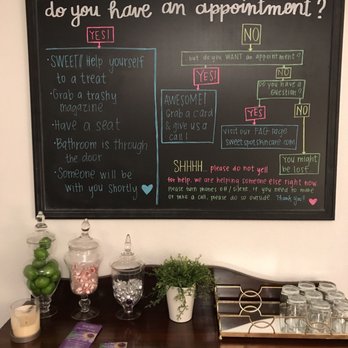 do you have an appointment?
YES!
NO
· SWEET!! Help yourself
to a treat
· Grab a trashy
magazine
· Have a seat
· Bathroom is through
the door
· Someone will be
with you shortly
but do you WANT an appointment?
YES!
NO
AWESOME!
Grab a card
& give us a
call!
Do you have a
question?
YES!
NO
visit our FAQ page
sweetspotskincare.com
You might
be lost.
SHHHH... please do not yell
for help. we are helping someone else right now
Please turn phones off/silent. if you need to make
or take a call, please do so outside. Thank you!